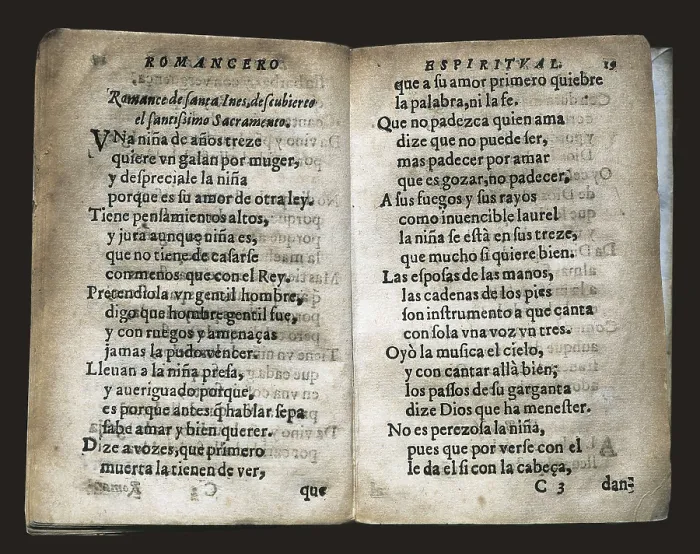 ROMANCERO
Romance de santa Ines, descubierto
el santissimo Sacramento.
VNa niña de años treze
quiere vn galan por muger,
y despreciale la niña
porque es su amor de otra ley.
Tiene pensamientos altos,
y jura aunque niña es,
que no tiene de casarse
con menos que con el Rey.
Pretendiola vn gentil hombre,
digo que hombre gentil fue,
y con ruegos y amenaças
jamas la pudo vencer.
Lleuan a la niña presa,
y aueriguado porque,
es porque antes q̃ hablar sepa
sabe amar y bien querer.
Dize a vozes, que primero
muerta la tienen de ver,
C 2
que
ESPIRITVAL. 19
que a su amor primero quiebre
la palabra, ni la fe.
Que no padezca quien ama
dize que no puede ser,
mas padecer por amar
que es gozar, no padecer,
A sus fuegos y sus rayos
como inuencible laurel
la niña se està en sus treze,
que mucho si quiere bien.
Las esposas de las manos,
las cadenas de los pies
son instrumento a que canta
con sola vna voz vn tres.
Oyò la musica el cielo,
y con cantar allà bien;
los passos de su garganta
dize Dios que ha menester.
No es perezosa la niña,
pues que por verse con el
le da el si con la cabeça,
C 3
dan-